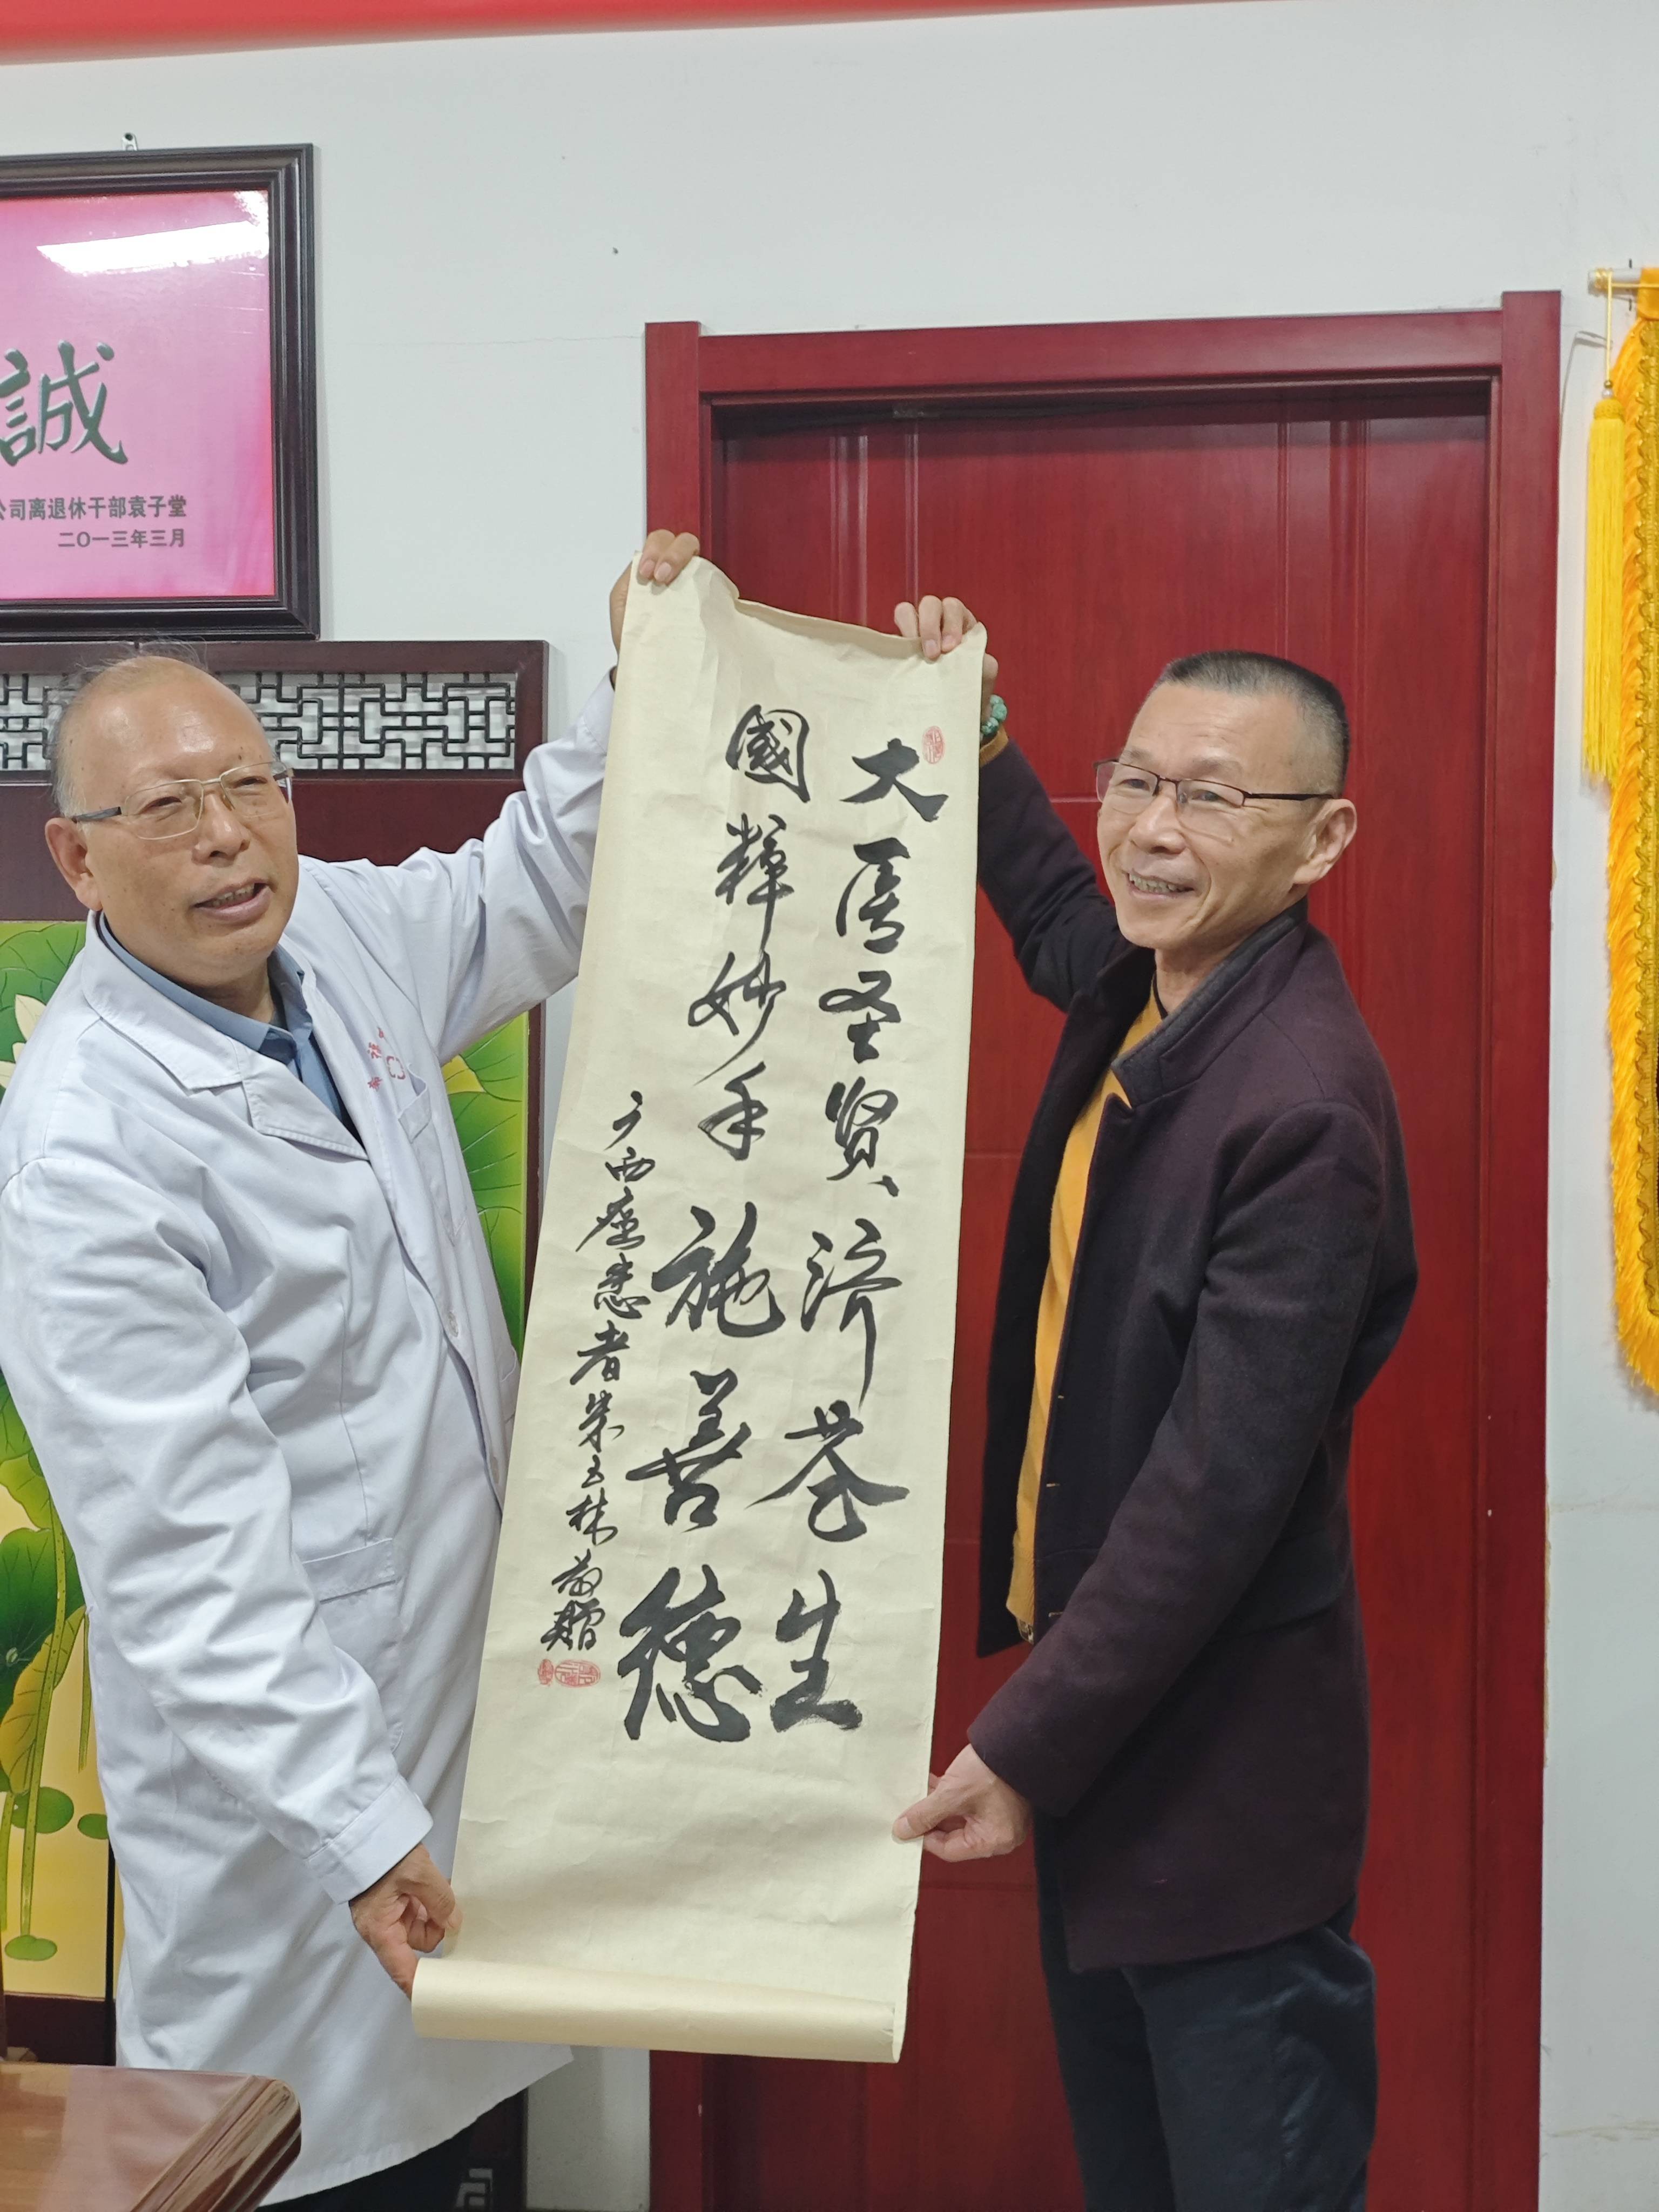 誠
公司离退休干部袁子堂
二〇一三年三月
大医圣贤济苍生
國粹妙手施善德
广西癌患者朱玉林敬赠